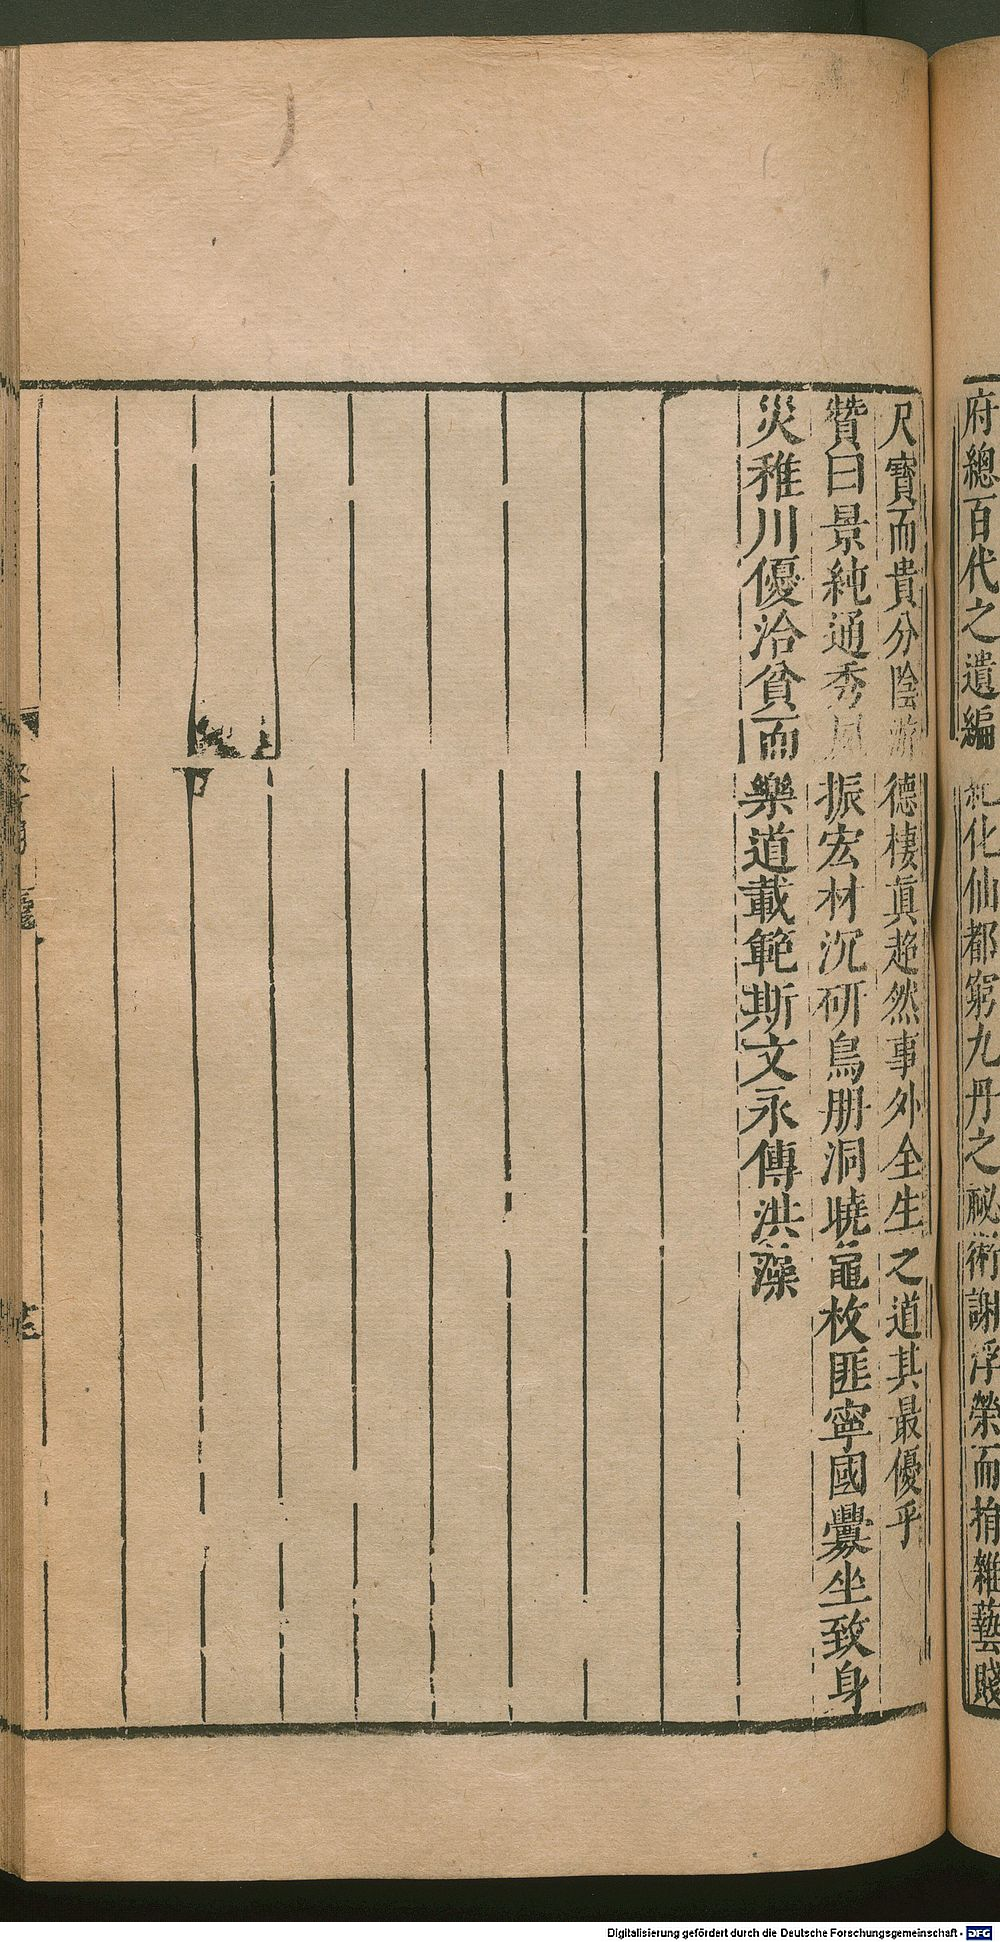 府總百代之遺編紀化仙都窮九丹之祕術謝浮榮而捐雜藝賤
尺寶而貴分陰游德棲真超然事外全生之道其最優乎
贊曰景純通秀夙振宏材沉研鳥册洞曉龜枚匪寧國釁坐致身
災稚川優洽貧而樂道載範斯文永傳洪藻
Digitalisierung gefördert durch die Deutsche Forschungsgemeinschaft - DFG